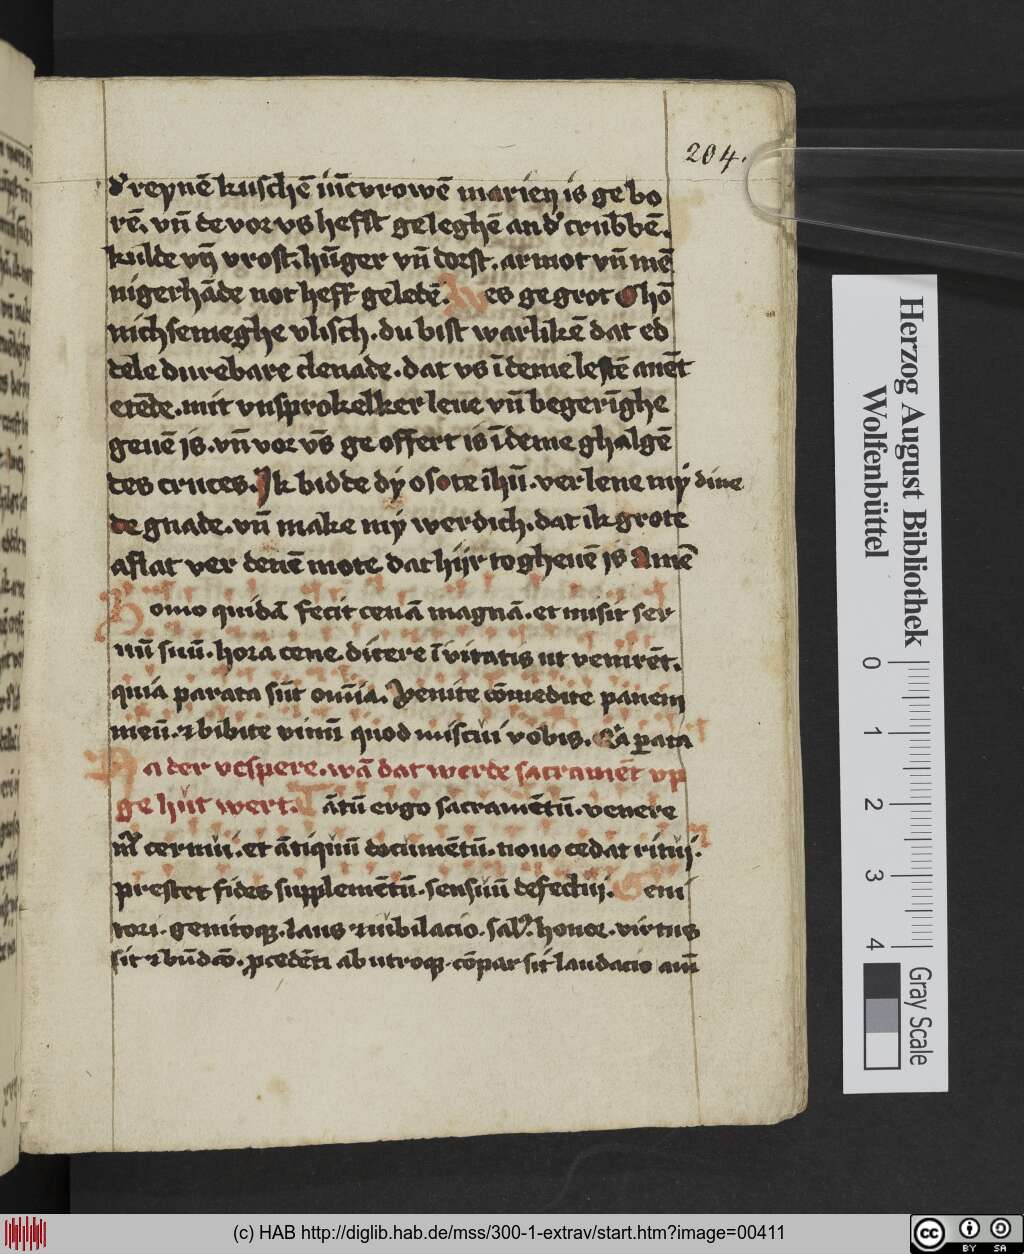 204.
dʾ reynē kuschē iūcvrowē marien is ge bo
rē. vn̄ de vor vs hefft geleghē an dʾ crubbē.
kulde vn̄ vrost. hūger vn̄ dorst. armot vn̄ mē
nigerhāde not heft geledē. Wes gegrot O hō
nichsemeghe vlisch. du bist warlikē dat ed
dele durebare clenade. dat vs ī deme lestē auēt
etēde. mit vnsprokelker leue vn̄ begerīghe
geuē is. vn̄ vor vs̄ ge offert is ī deme ghalgē
des cruces. Ik bidde dy o sote ih̄u. verlene my dine
de gnade. vn̄ make my werdich. dat ik grote
aflat ver denē mote dat hijr to gheuē is Amē
Homo quidā fecit cenā magnā. et misit ser
uū suū. hora cene. dicere īvitatis ut venirēt.
quia parata sūt om̄ia. Venite cōmedite panem
meū. et bibite vinū quod miscui vobis. Qʾa parata
Na der vespere. wā dat werde sacramēt vp
ge hūt wert. Tātū ergo sacramētū. venere
mʾ cernui. et ātiquū documētū. nouo cedat ritui.
prestet fides supplemētū. sensuū defectui. Geni
tori. genitoque. laus et iubilacio. salʾ. honor. virtus
sit et būdcō. procedēti ab utroque. cōpar sit laudacio am̄
Herzog August Bibliothek
Wolfenbüttel
0 1 2 3 4
Gray Scale
(c) HAB http://diglib.hab.de/mss/300-1-extrav/start.htm?image=00411
cc BY SA